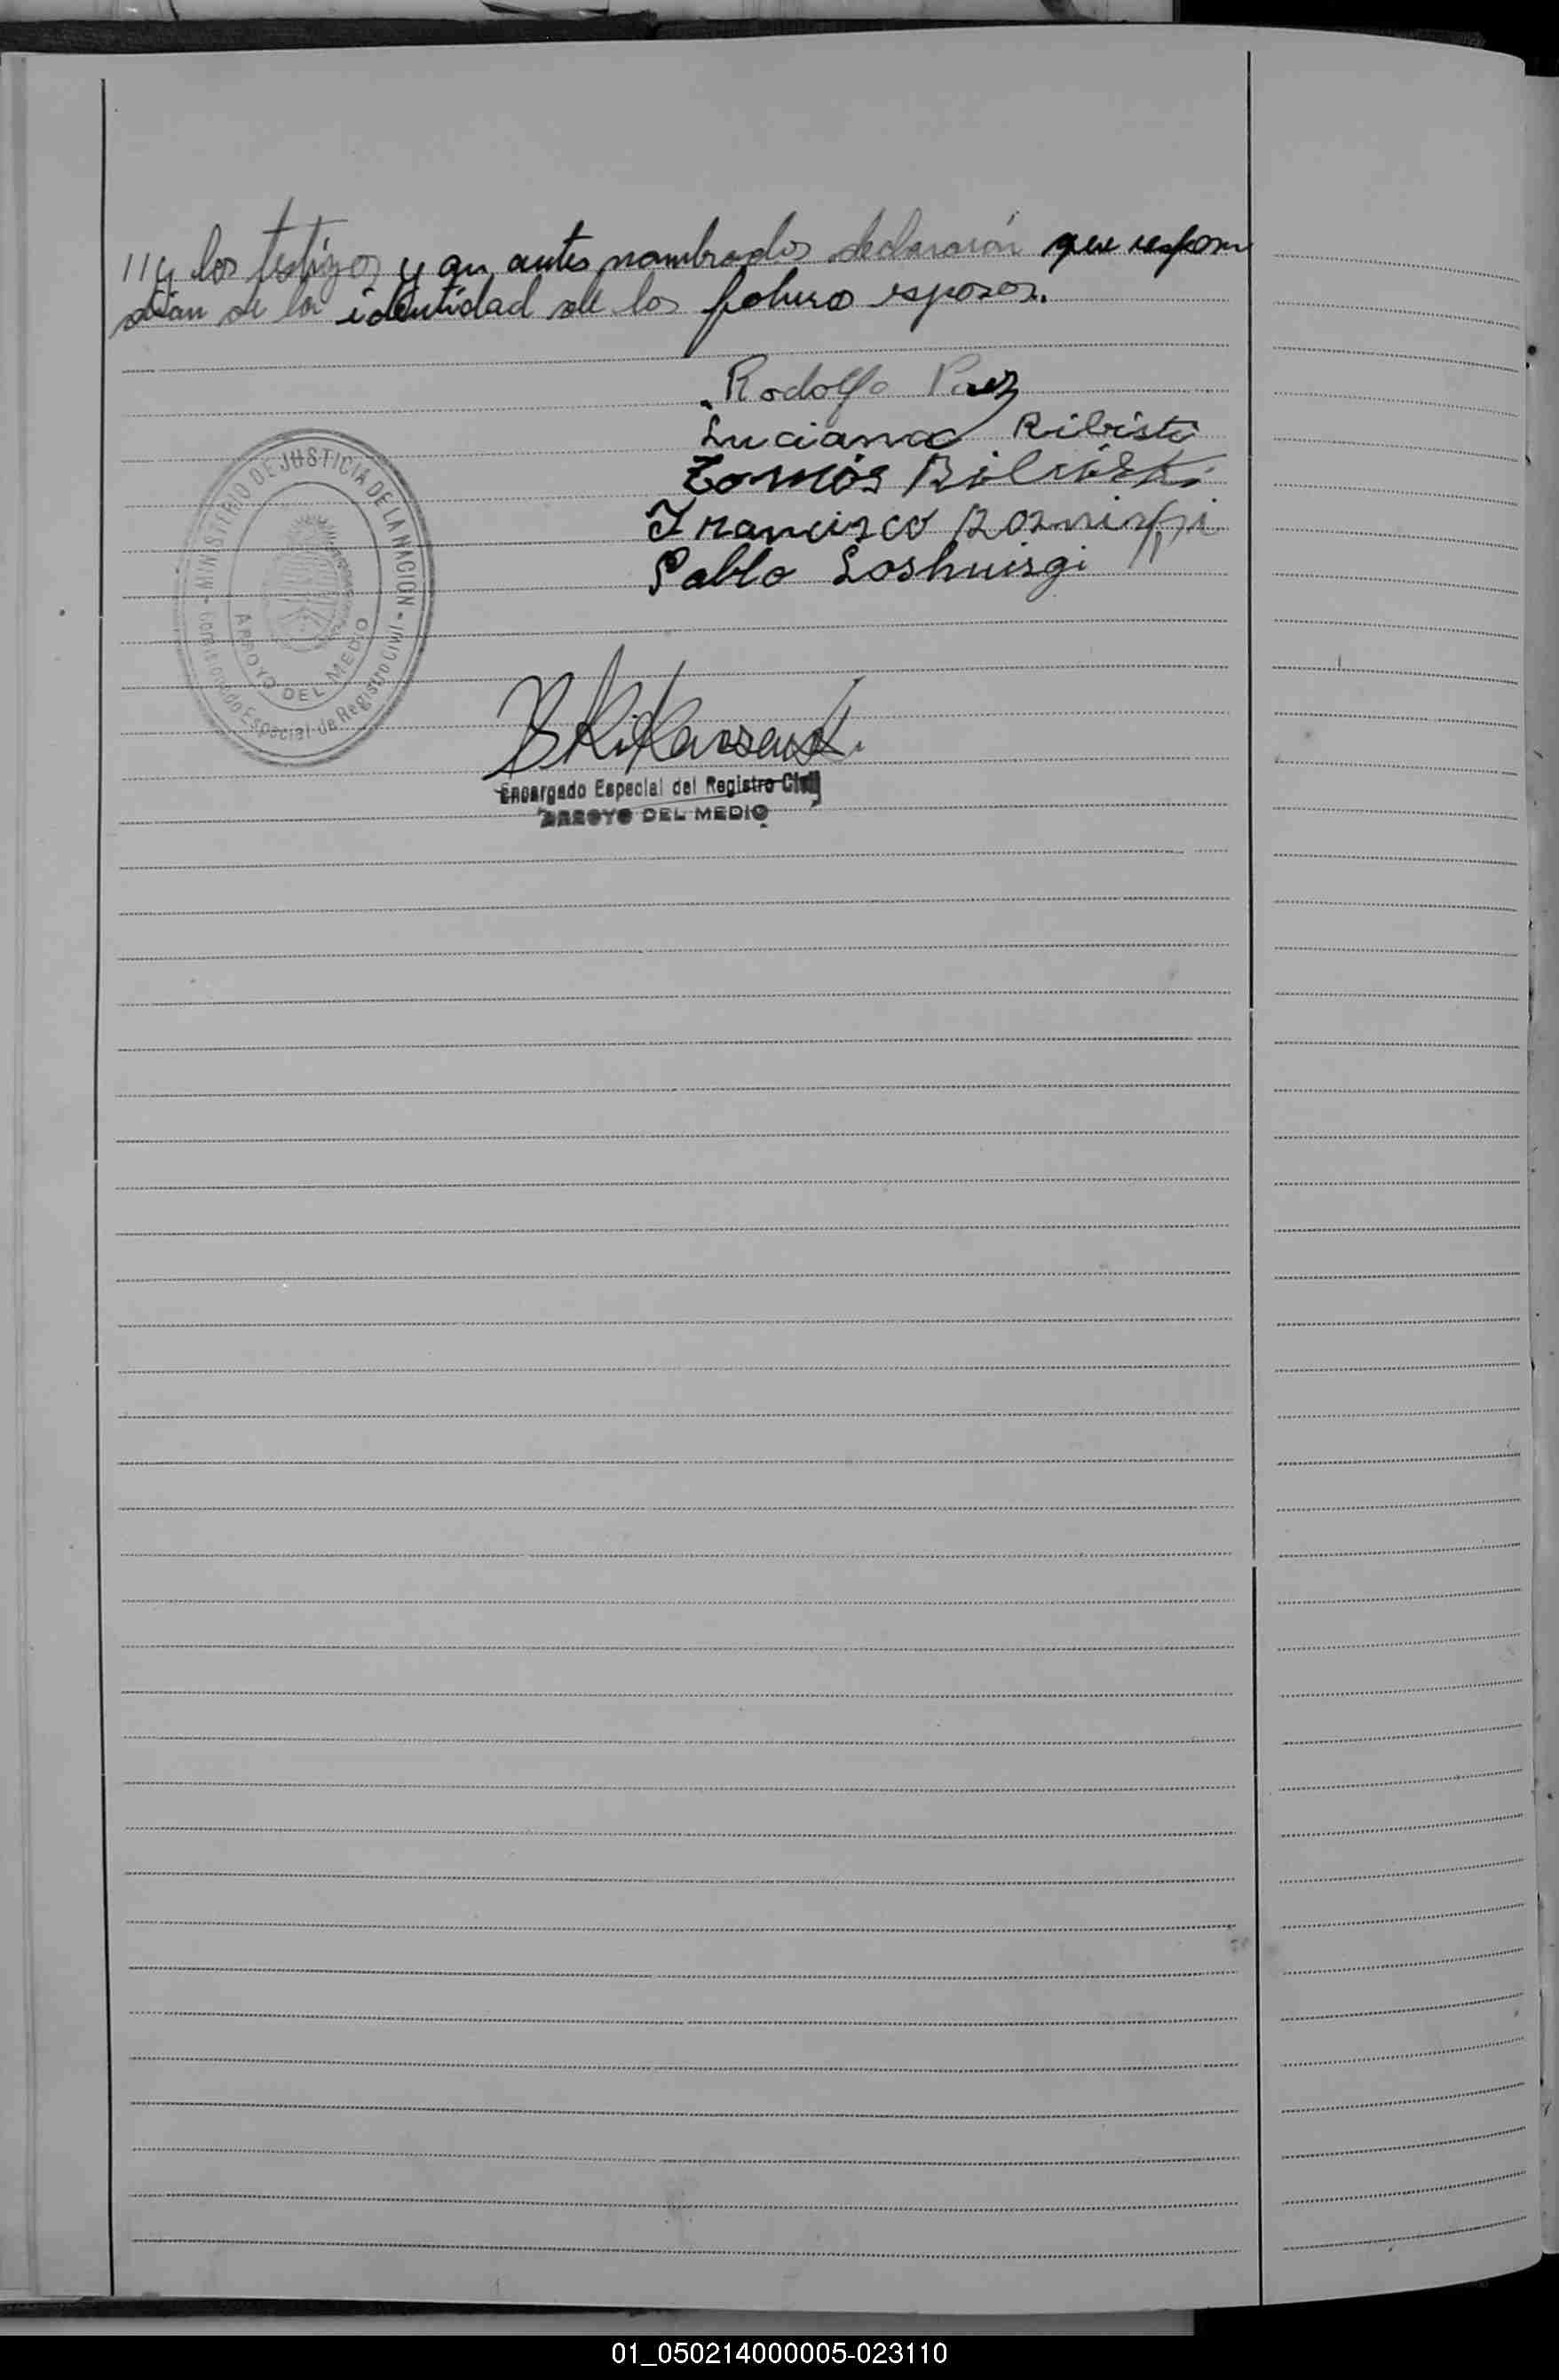 // y los testigos y an antes nombrados declararon que respon
dian de la identidad de los futuro esposos.
Rodolfo Paez
Luciana Ribisti
Tomás Bilinski
Francisco
Pablo Loshuisgi
MINISTERIO DE JUSTICIA DE LA NACION
ARROYO DEL MEDIO
Especial de Registro Civil
Encargado Especial del Registro Civil
ARROYO DEL MEDIO
01_050214000005-023110